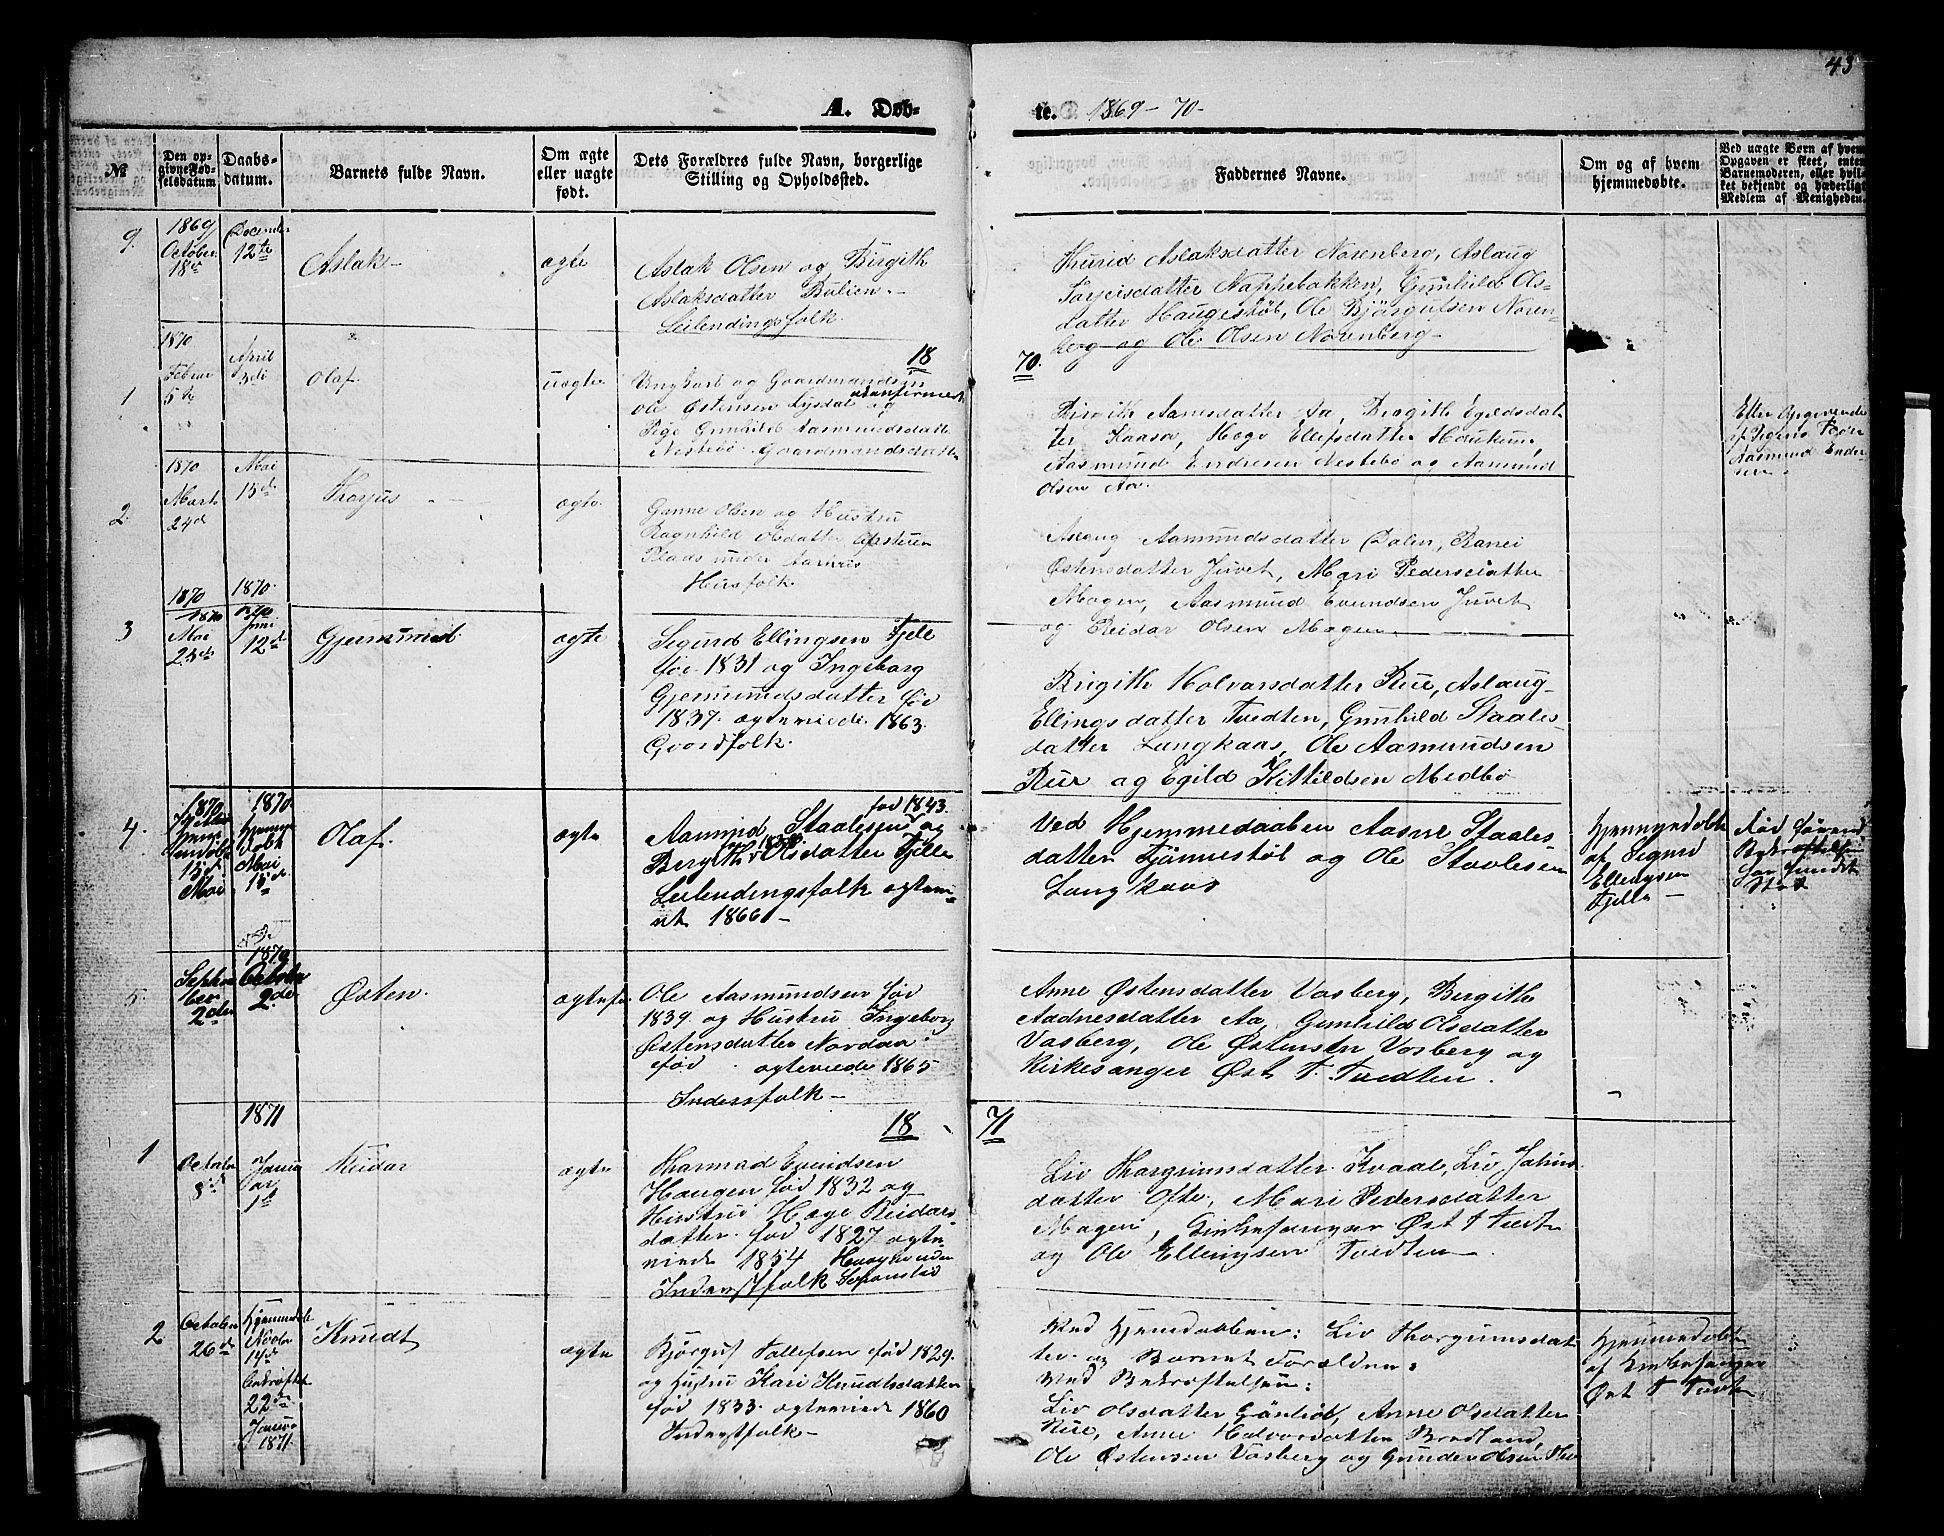 43
A. Døb-
te. 1869-70-
№
Den op-
givne Fød-
selsdatum
Daabs-
datum.
Barnets fulde Navn.
Om ægte
eller uægte
født.
Dets Forældres fulde Navn, borgerlige
Stilling og Opholdssted.
Faddernes Navne.
Om og af hvem
hjemmedøbte.
Ved uægte Børn af hvem
Opgaven er skeet, enten
Barnemoderen, eller hvil-
ket bekjendt og hæderligt
Medlem af Menigheden.
9.
1869
October
18de
December
12te
Aslak-
ægte
Aslak Olsen og Birgith
Aslaksdatter Bulien.-
Leilendingsfolk.
Thurid Aslaksdatter Norenberg, Aslaug
Torjeisdatter Nappebakken, Gunhild Ols-
datter Haugestøb, Ole Bjørgulsen Noren-
berg og Ole Olsen Norenberg-
18
70.
1
1870
Februar
5te
April
3die
Olaf.
uægte
Ungkarl og Gaardmandsøn
Ole Østensen Lysdal og
Pige Gunhild Aasmundsdatter
Nestebø. Gaardmandsdatter
Birgith Aanesdatter Aa, Birgith Egildsdat-
ter Kaasa, Hæge Ellefsdatter Haukum,
Aasmund Endresen Nestebø og Aasmund
Olsen Aa.
Efter Opgivende
af Pigens Fader
Aasmund Ender-
sen.
2.
1870
Marts
24de
Mai
15de
Torjus
ægte.
Ganne Olsen og Hustru
Ragnhild Olsdatter
Plads under
Husfolk.
Aslaug Aasmundsdatter Dalen, Ranei
Østensdatter Juvet, Mari Pedersdatter
Mogen, Aasmund Evindsen Juvet
og Reidar Olsen Mogen.
3
1870
1870
Mai
23de
1870
Juni
12de
Gjermund
ægte
Sigurd Ellingsen Fjelle
føe 1831 og Ingeborg
Gjermundsdatter fød
1837. ægteviede 1863.
Gaardfolk.
Brigith Halvorsdatter Rue, Aslaug
Ellingsdatter Tvedten, Gunhild Staales-
datter Langkaas, Ole Aasmundsen
Rue og Egild Kittildsen Medbø
4.
1870
13de
Mai
1870.
Hjemme
døbt
Mai
15de
Olaf.
ægte
fød 1843.
Aasmund Staalesen og
Bergith Olsdatter Fjelle
Leilendingsfolk ægtevi-
et 1866-
Ved Hjemmedaaben Aasne Staales-
datter Tjønnestøl og Ole Staalesen
Langkaas
Hjemmedøbt
af Sigurd
Ellingsen
Fjelle-
Død førend
Bekræftelsen
har fundet
Sted
5.
Septem
ber
2den
1870
October
2den
Østen.
ægtefø.
Ole Aasmundsen fød
1839. og Hustru Ingeborg
Østensdatter Nordaa
fød . ægteviede 1865
Inderstfolk-
Anne Østensdatter Vasberg, Bergith
Aadnesdatter Aa, Gunhild Olsdatter
Vasberg, Ole Østensen Vasberg og
Kirkesanger Øst. T. Tvedten.
18
71
1
October
8de
1871
Janu
ar
1st
Reidar
ægte
Thormod Evindsen
Haugen fød 1832 og
Hustru Hæge Reidars-
datter fød 1827 ægte-
viede 1854 Haugen under
Inderstfolk
Liv Thorgrimsdatter Kvaale, Liv Johns-
datter Ofte, Mari Pedersdatter
Mogen, Kirkesanger Øst T Tvedten
og Ole Ellingsen Tvedten
2
October
26de
Hjemmedøbt
Novbr
14de
bekræftet
22de
Januar
1871.
Knudt
ægte
Bjørguf Tallefsen fød 1829.
og Hustru Kari Knudtsdatter
fød 1833. ægteviede 1860
Inderstfolk-
Ved Hjemedaaben: Liv Thorgrimsdat-
ter og Barnets Forældre:
Ved Bekræftelsen:
Liv Olsdatter, Anne Olsdatter
Rue, Anne Halvorsdatter Bredland,
Ole Østensen Vasberg og Gunder Olsen Rue
Hjemmedøbt
af Kirkesanger
Øst T Tvedten